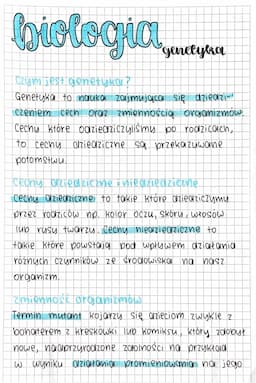 biologia
genetyka
Czym jest genetyka?
Genetyka to nauka zajmująca się dziedzi-
czeniem cech oraz zmiennością organizmów.
Cechy które odziedziczyliśmy po rodzicach,
to cechy dziedziczne są przekazywane
potomstwu.
Cechy dziedziczne i niedziedziczne
Cechy dziedziczne to takie które dziedziczymy
przez rodziców np. kolor oczu, skóry, włosów
lub rysy twarzy. Cechy niedziedziczne to
takie które powstają pod wpływem działania
różnych czynników ze środowiska na nasz
organizm.
Zmienność organizmów
Termin mutant kojarzy się dzieciom zwykle z
bohaterem z kreskówki lub komiksu, który zdobył
nowe, nadprzyrodzone zdolności na przykład
w wyniku działania promieniowania na jego